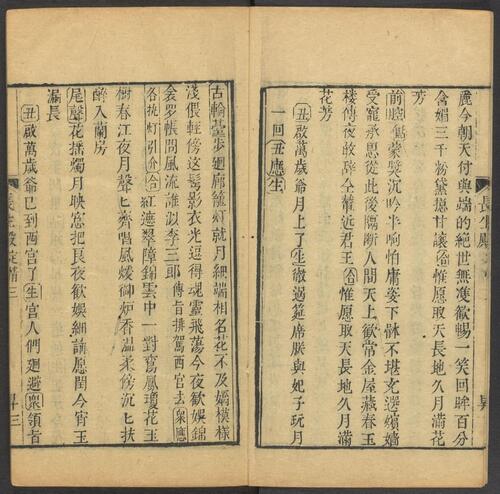 長生殿 昇
麗今朝天付與端的絕世無雙歡暢一笑回眸百分
含媚三千粉黛總甘讓合惟愿取天長地久月滿花
芳
前腔蒙奬沉吟半晌怕庸姿下體不堪充選嬪嬙
受寵承恩從此後隔斷人間天上歡常金屋藏春玉
樓傳夜敢辞仝輦近君王合惟愿取天長地久月滿
花芳
丑啟萬歲爺月上了生徹過筵席朕與妃子玩月
一回丑應生
古輪臺步廻廊籠灯就月細端相名花不及嬌模樣
淺偎輕傍這鬂影衣光逗得魂靈飛蕩今夜歡娛錦
衾罗帳問風流誰似李三郎傳旨排駕西宮去衆應
各挑灯引介合紅遮翠障錦雲中一對鸞鳳瓊花玉
樹春江夜月聲匕齊唱風煖御炉香溫柔傍沉匕扶
醉入蘭房
尾聲花搖燭月映窓把良夜歡娛細講愿閏今宵玉
漏長
丑啟萬歲爺巳到西宮了生宮人們廻避衆領旨
長生殿定情三 昇三